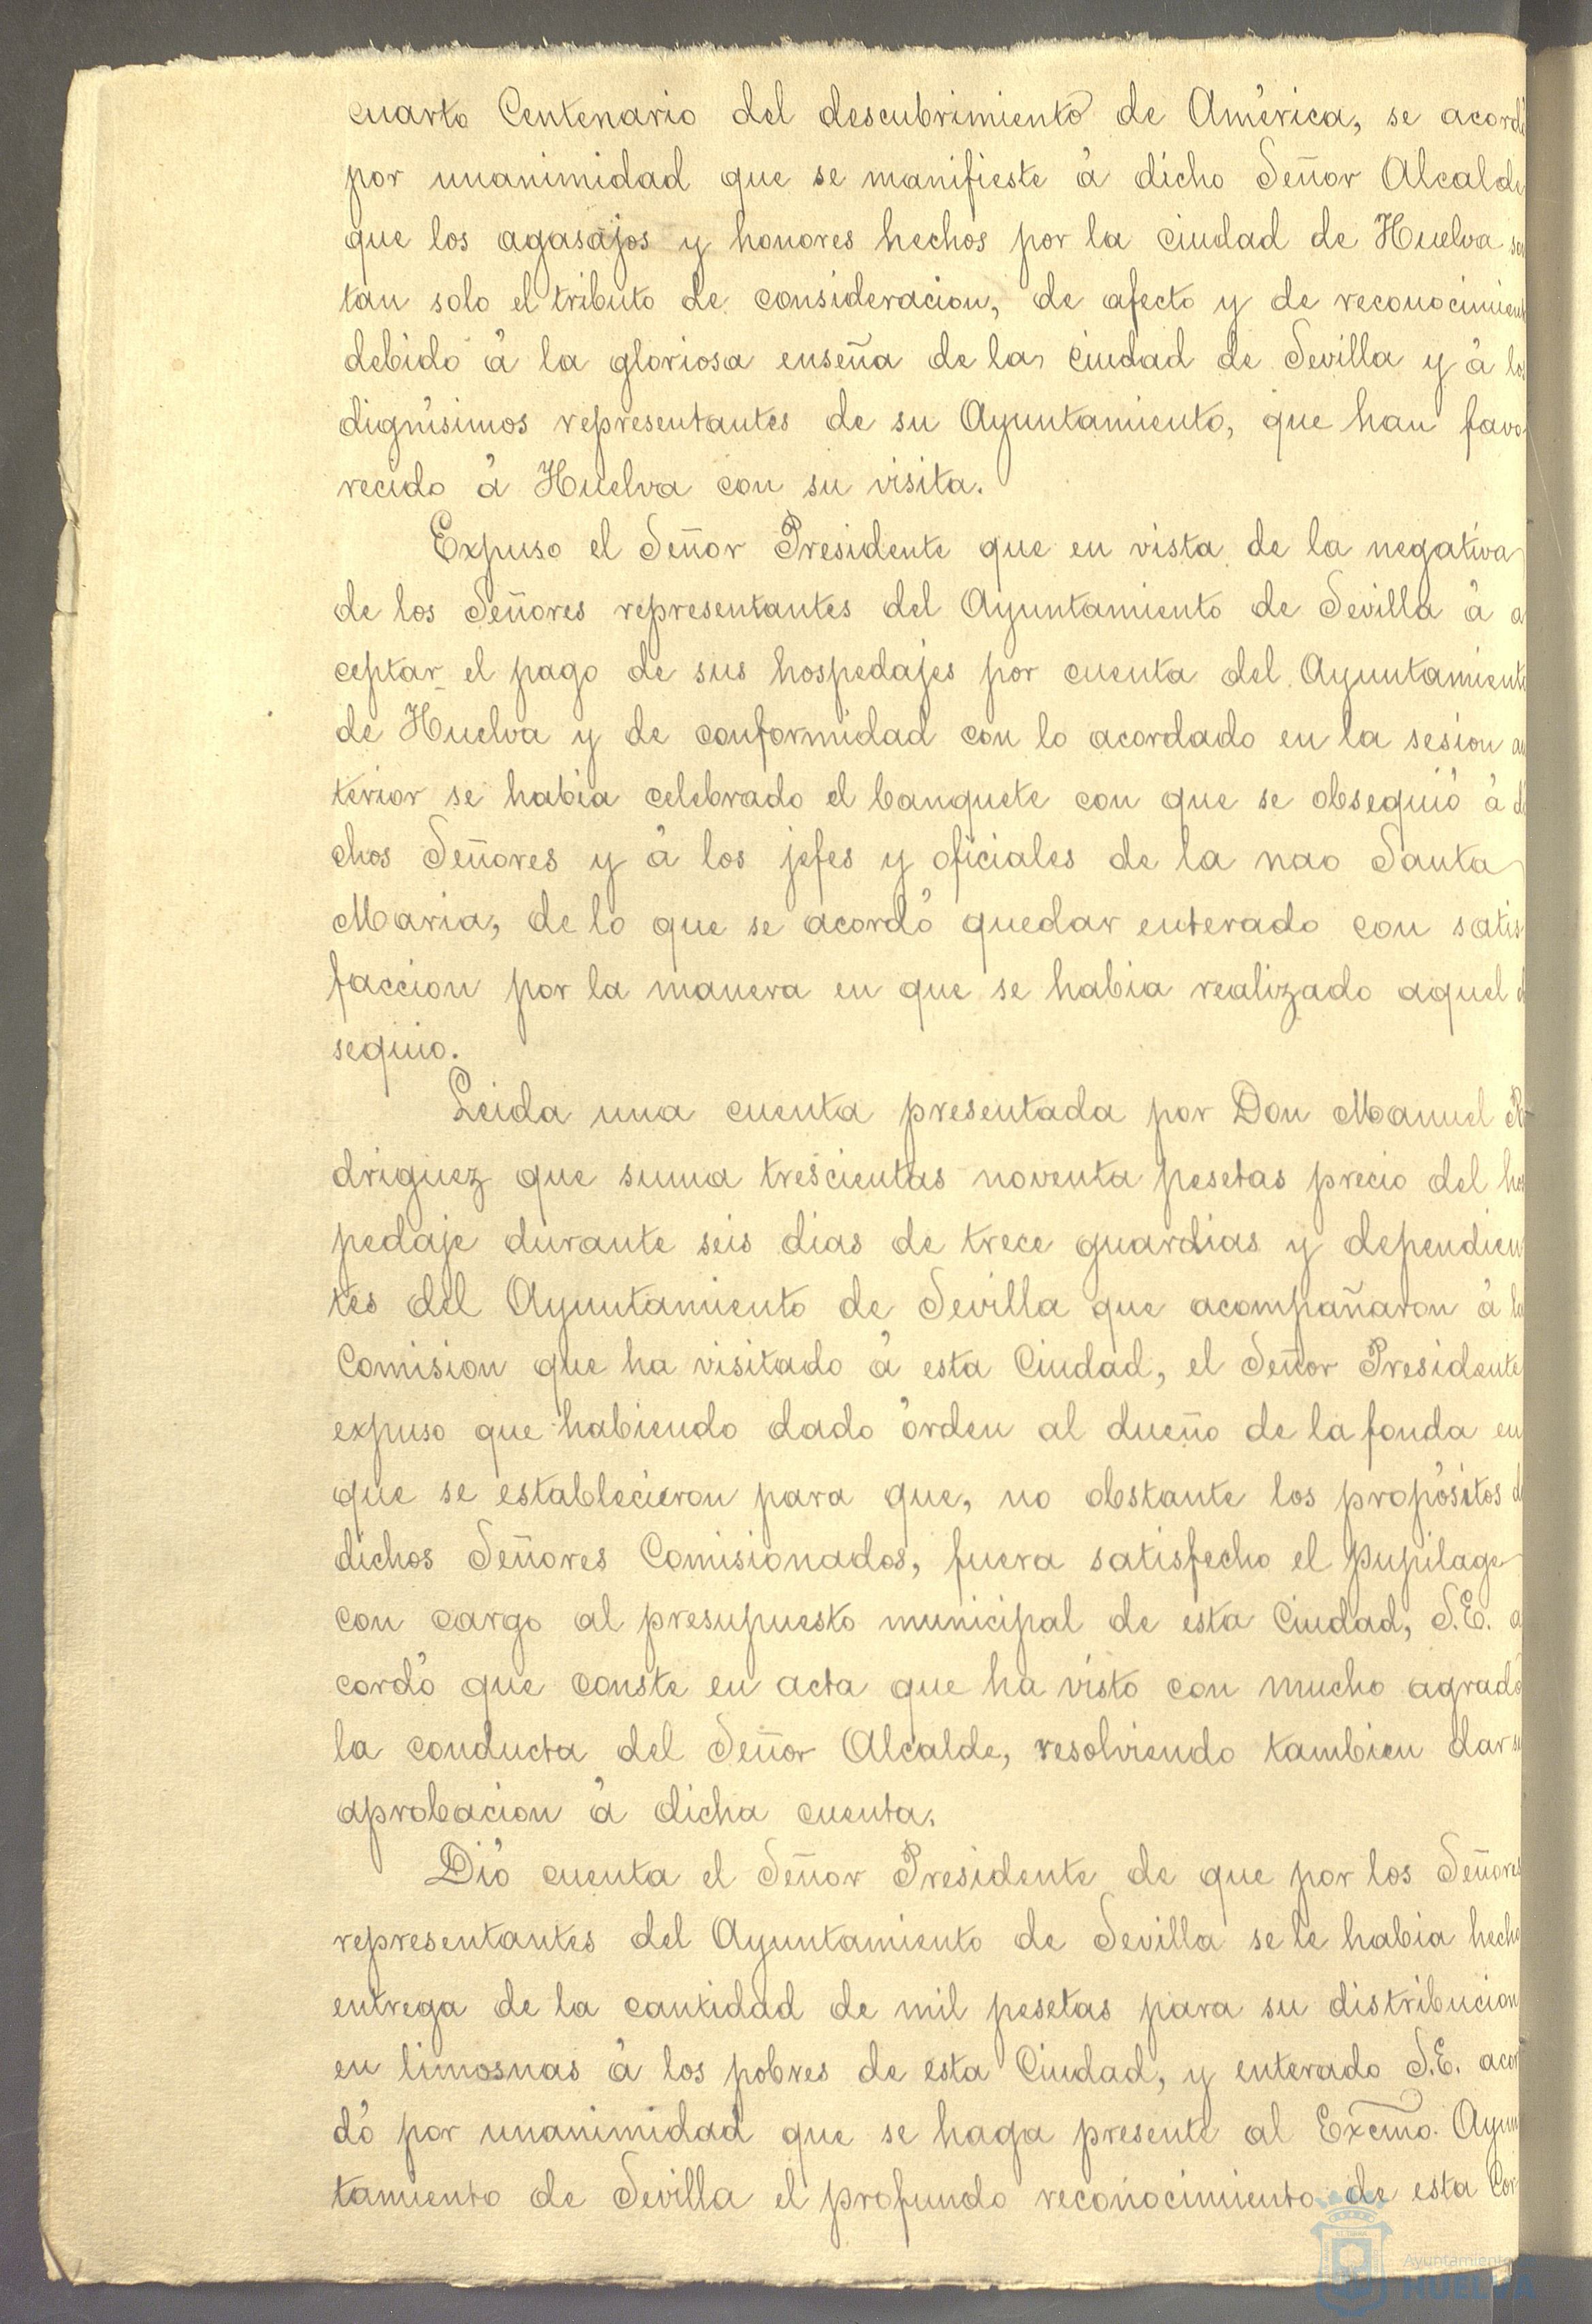 cuarto Centenario del descubrimiento de América, se acordó
por unanimidad que se manifieste á dicho Señor Alcalde
que los agasajos y honores hechos por la ciudad de Huelva son
tan solo el tributo de consideracion, de afecto y de reconocimiento
debido á la gloriosa enseña de la ciudad de Sevilla y á los
dignísimos representantes de su Ayuntamiento, que han favo
recido á Huelva con su visita.
Expuso el Señor Presidente que en vista de la negativa
de los Señores representantes del Ayuntamiento de Sevilla á a
ceptar el pago de sus hospedajes por cuenta del Ayuntamiento
de Huelva y de conformidad con lo acordado en la sesion an
terior se habia celebrado el banquete con que se obsequió á di
chos Señores y á los jefes y oficiales de la nao Santa
Maria, de lo que se acordó quedar enterado con satis
faccion por la manera en que se habia realizado aquel ob
sequio.
Leida una cuenta presentada por Don Manuel Ro
driguez que suma trescientas noventa pesetas precio del hos
pedaje durante seis dias de trece guardias y dependien
tes del Ayuntamiento de Sevilla que acompañaron á la
Comision que ha visitado á esta Ciudad, el Señor Presidente
expuso que habiendo dado órden al dueño de la fonda en
que se establecieron para que, no obstante los propósitos de
dichos Señores Comisionados, fuera satisfecho el pupilage
con cargo al presupuesto municipal de esta Ciudad, S.E. a
cordó que conste en acta que ha visto con mucho agrado
la conducta del Señor Alcalde, resolviendo tambien dar su
aprobacion á dicha cuenta.
Dió cuenta el Señor Presidente de que por los Señores
representantes del Ayuntamiento de Sevilla se le habia hecho
entrega de la cantidad de mil pesetas para su distribucion
en limosnas á los pobres de esta Ciudad, y enterado S.E. acor
dó por unanimidad que se haga presente al Excmo. Ayun
tamiento de Sevilla el profundo reconocimiento de esta Cor
Ayuntamiento
HUELVA